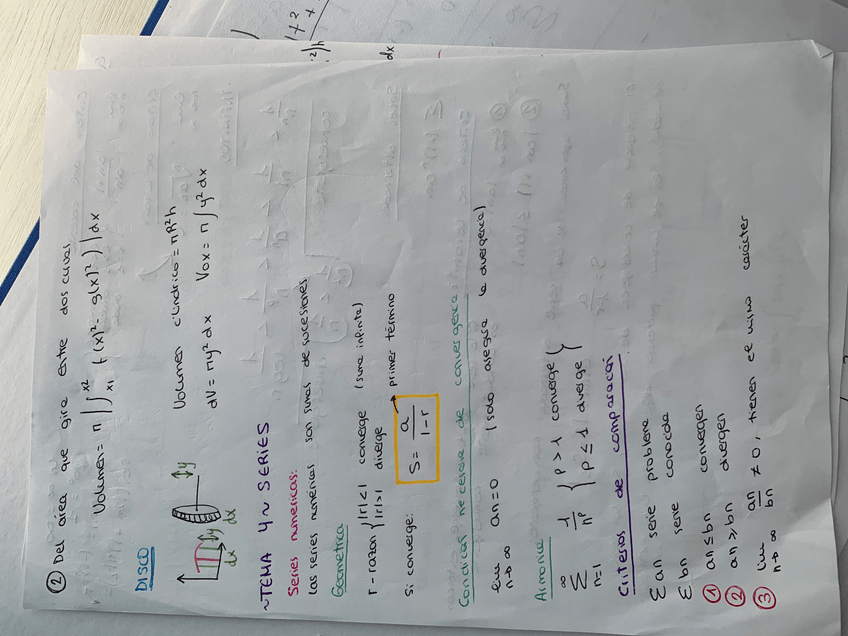 ② Del área que gira entre dos curvas
Volumen = π |∫x1 x2 f(x)² - g(x)²) | dx
DISCO
y
dx
dx
y
Volumen cilíndrico = πR²h
dV = πy² dx Vox = π ∫ y² dx
~TEMA 4~ SERIES
Series numéricas:
Las series numéricas son sumas de sucesiones
Geométrica
r - razón { |r| < 1 converge (suma infinita)
|r| > 1 diverge
Si converge: S = a / 1 - r → primer término
Condición necesaria de convergencia
lim n→∞ an = 0 (solo asegura la divergencia)
Armónica
∞ Σ n=1 1/nᵖ { p > 1 converge }
{ p ≤ 1 diverge }
Criterios de comparación
Σ an serie problema
Σ bn serie conocida
① an ≤ bn convergen
② an ≥ bn divergen
③ lim n→∞ an/bn ≠ 0, tienen el mismo carácter